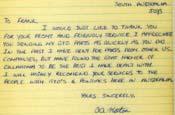 SOUTH AUSTRALIA.
TO FRANK,
I WOULD JUST LIKE TO THANK YOU
FOR YOUR PROMPT AND FRIENDLY SERVICE. I APPRECIATE
YOU SENDING MY GTO PARTS AS QUICKLY AS YOU DID.
IN THE PAST I HAVE SENT FOR PARTS FROM OTHER US.
COMPANIES, BUT HAVE FOUND THE GOAT FARMER OF
CALIFORNIA TO BE THE BEST I HAVE DEALT WITH.
I WILL HIGHLY RECOMEND YOUR SERVICES TO THE
PEOPLE WITH GTO'S & PONTIACS HERE IN AUSTRALIA.
YOURS SINCERELY